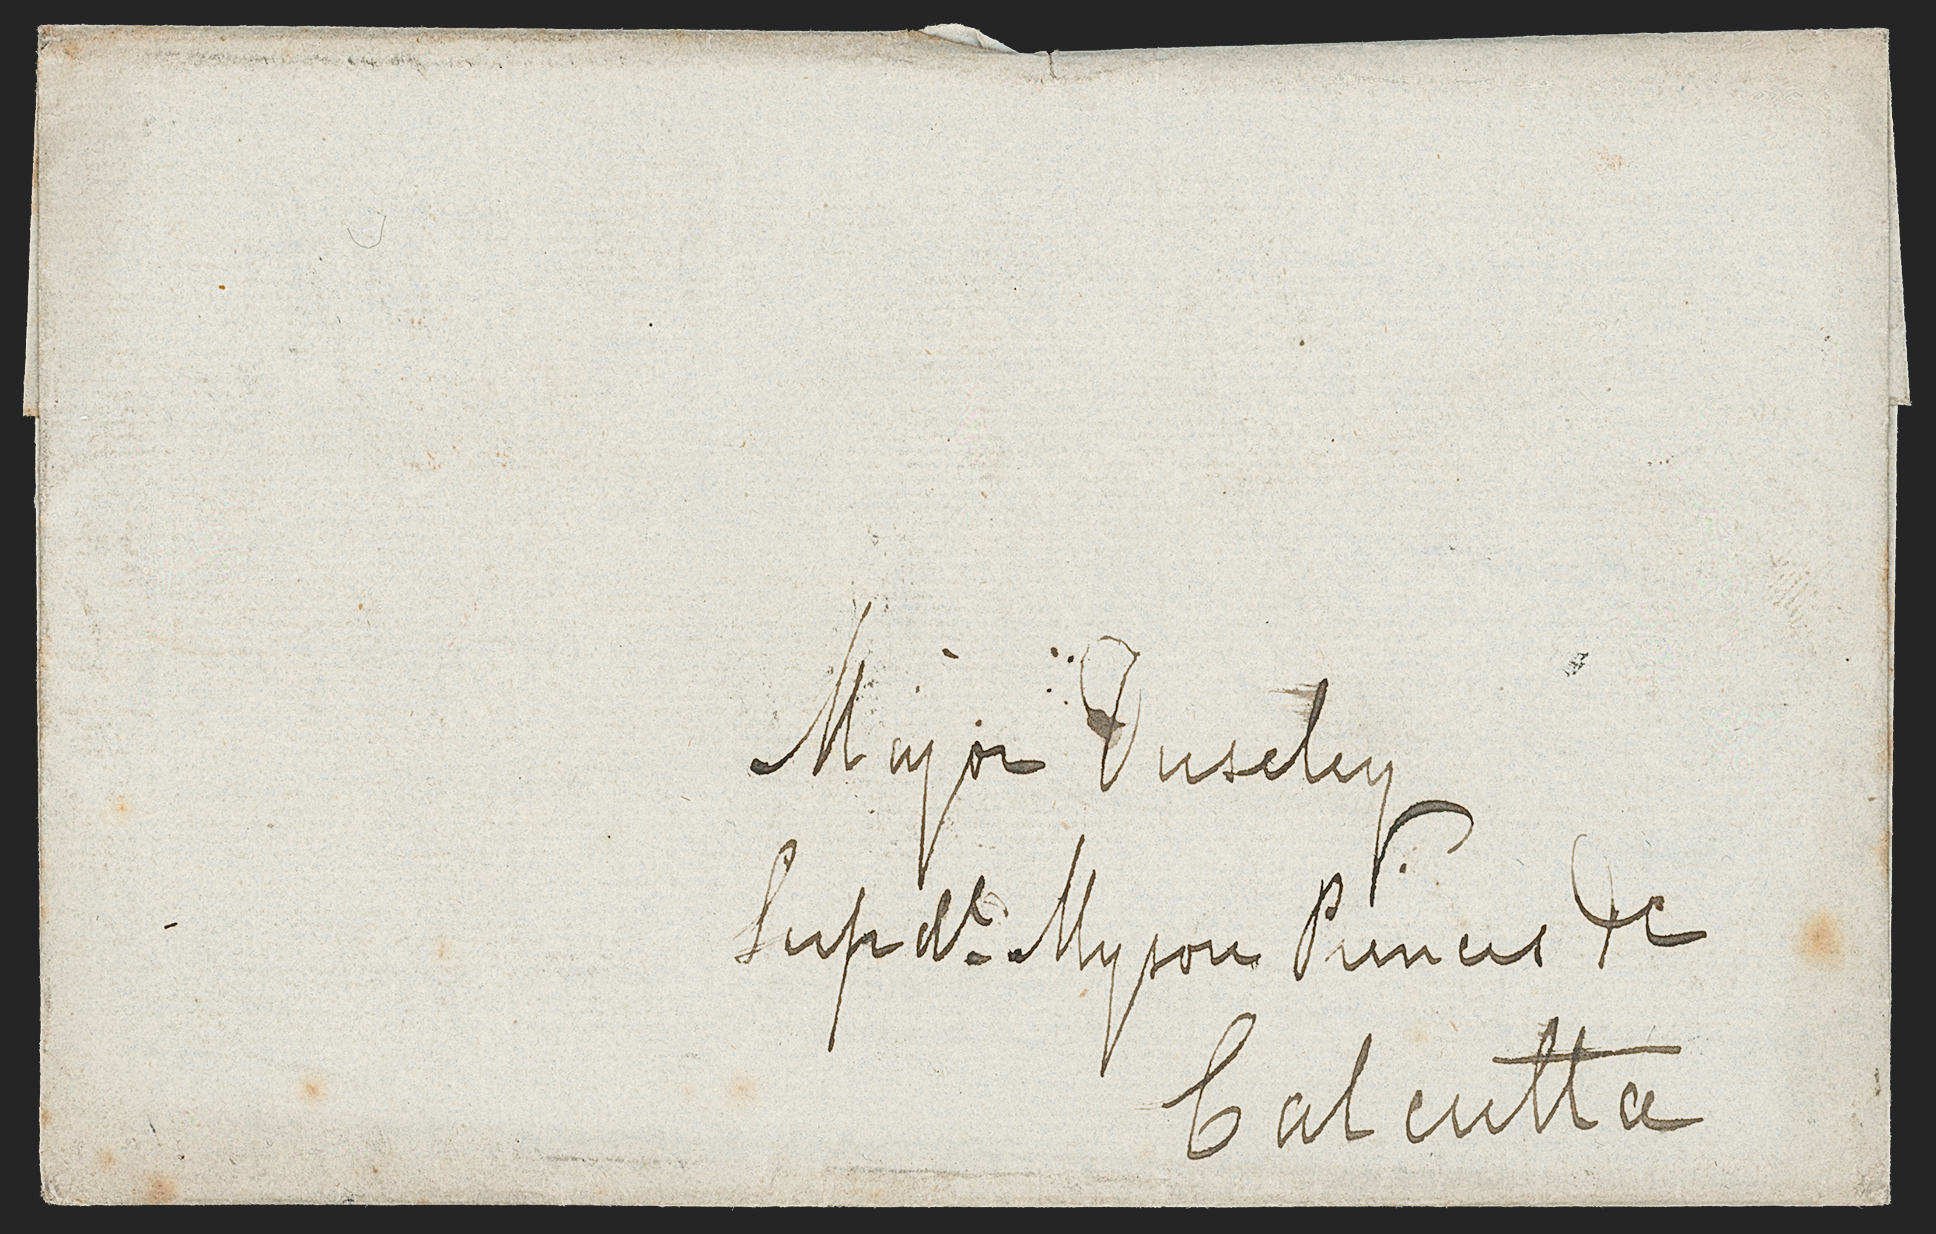 Major Ouseley
Supdt. Mysore Princes &c
Calcutta